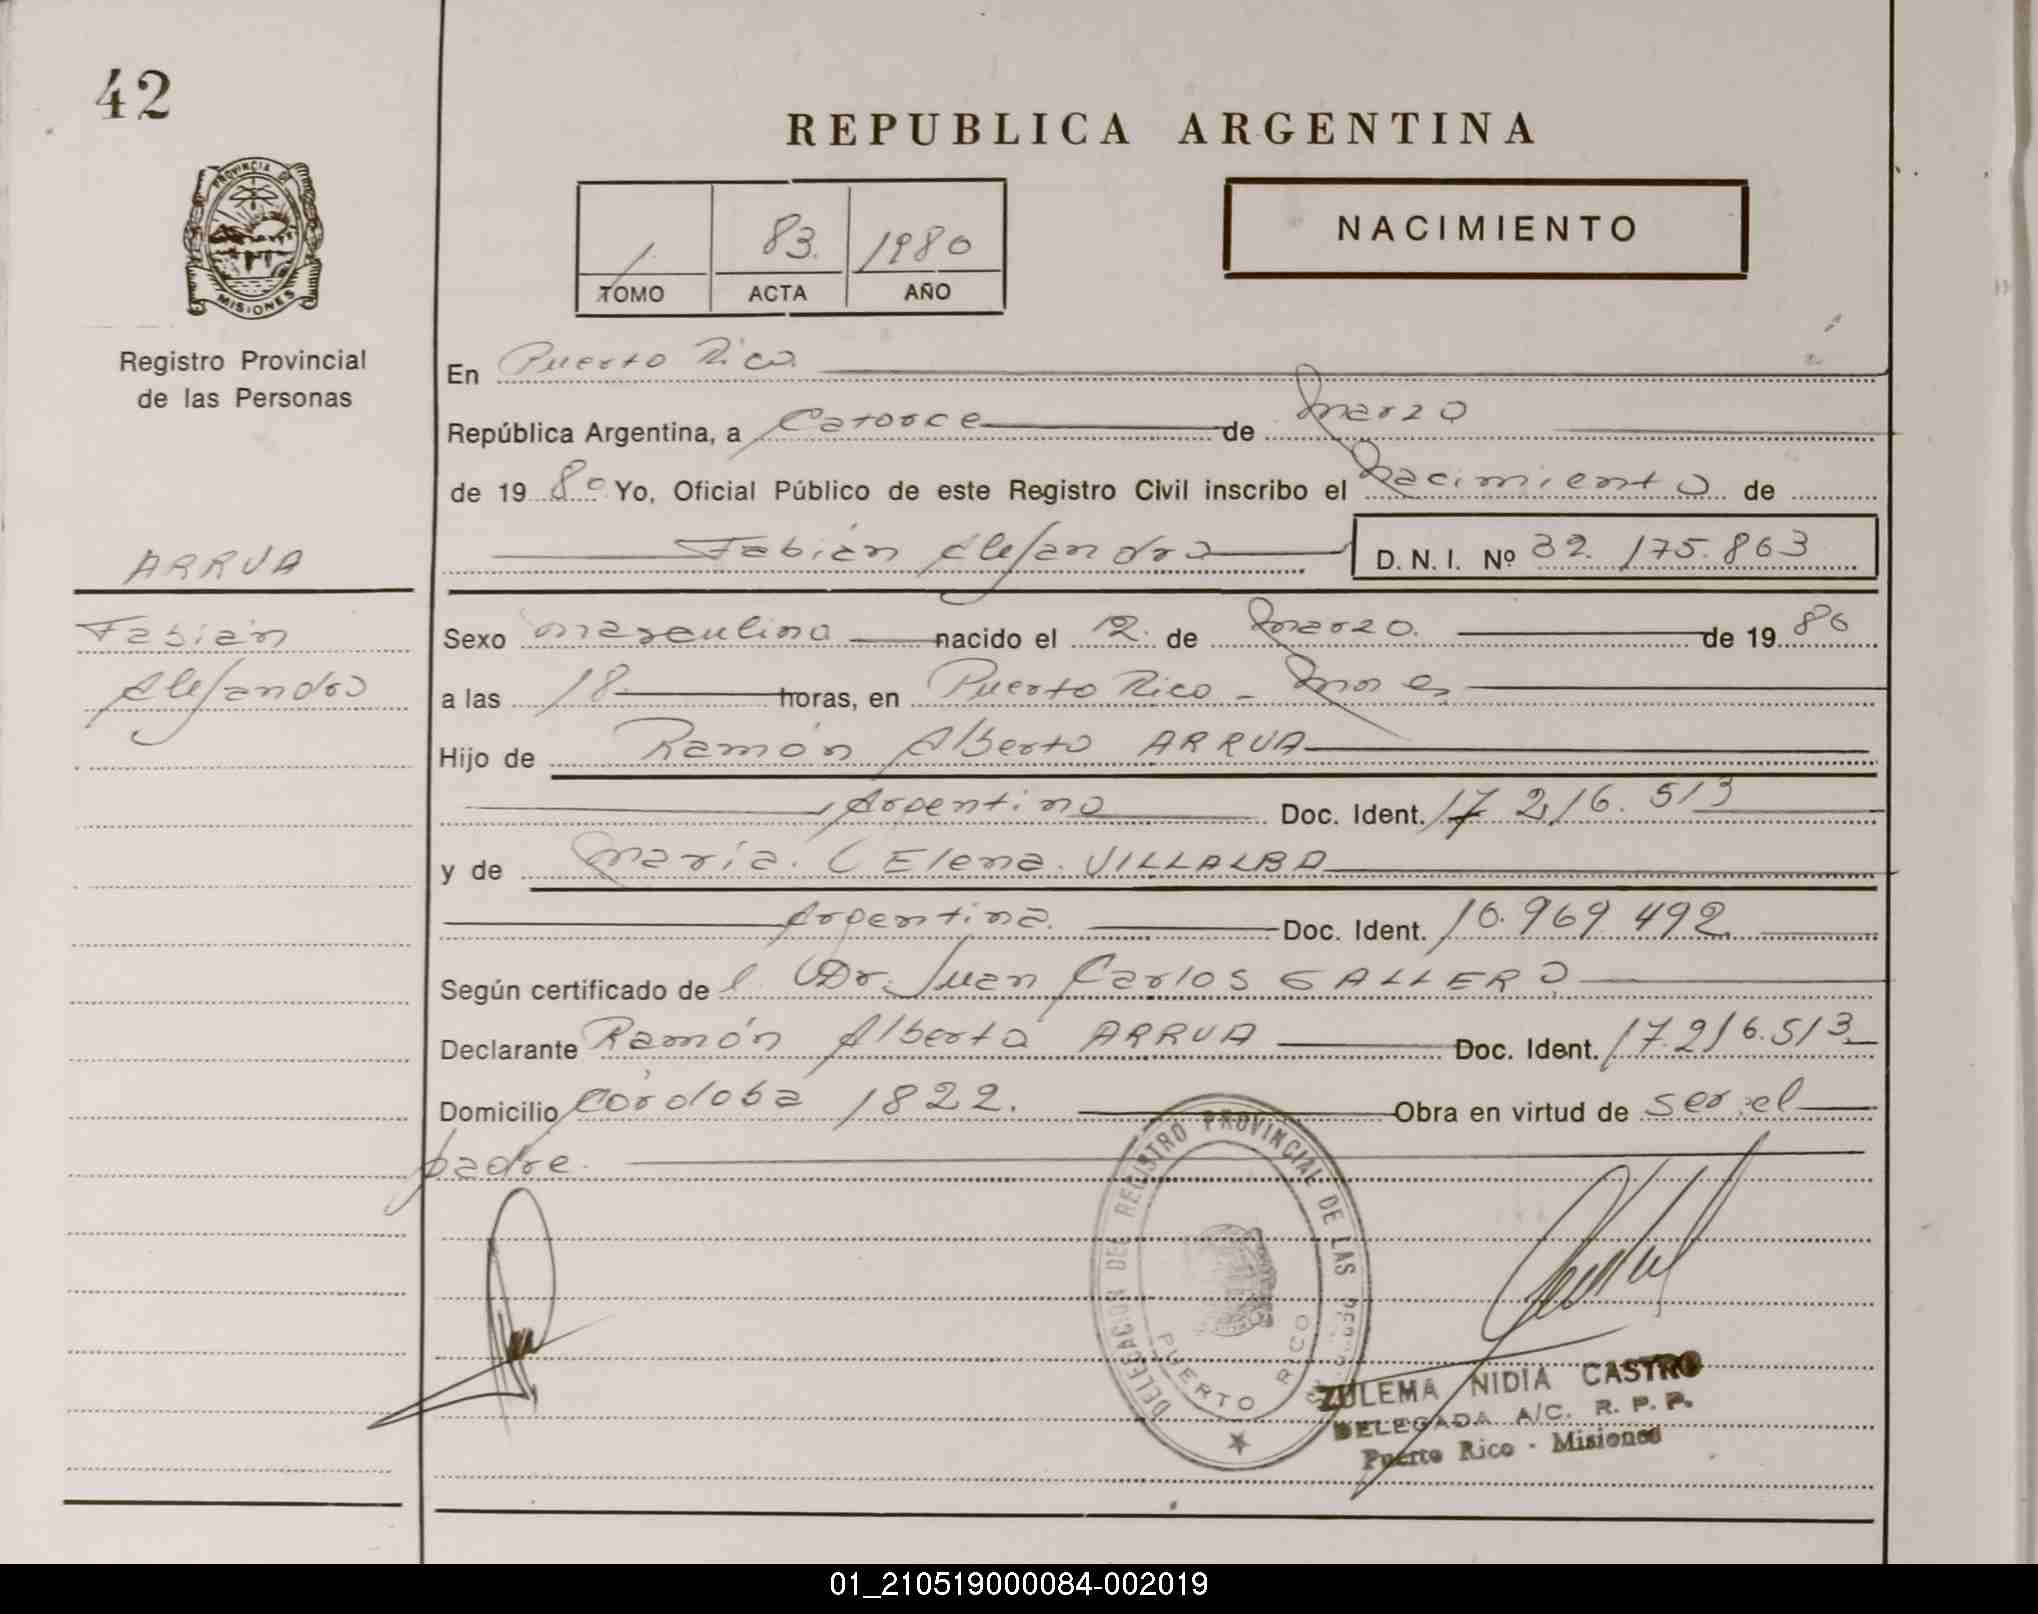 42
REPUBLICA ARGENTINA
PROVINCIA DE
MISIONES
1. 83. 1980
TOMO ACTA AÑO
NACIMIENTO
Registro Provincial
de las Personas
En Puerto Rico.
República Argentina, a Catorce de Marzo
de 19 80 Yo, Oficial Público de este Registro Civil inscribo el Nacimiento de
Fabián Alejandro D. N. I. Nº 32.175.863
ARRUA
Fabián
Alejandro
Sexo masculino nacido el 12. de Marzo. de 19 80
a las 18 horas, en Puerto Rico - Mnes
Hijo de Ramón Alberto ARRUA
Argentino Doc. Ident. 17.216.513
y de María Elena VILLALBA
Argentina. Doc. Ident. 16.969.492
Según certificado de l Dr. Juan Carlos GALLERO
Declarante Ramón Alberto ARRUA Doc. Ident. 17.216.513
Domicilio Córdoba 1822. Obra en virtud de ser el
padre.
DELEGACION DEL REGISTRO PROVINCIAL DE LAS
PUERTO RICO
ZULEMA NIDIA CASTRO
DELEGADA A/C. R. P. P.
Puerto Rico - Misiones
01_210519000084-002019